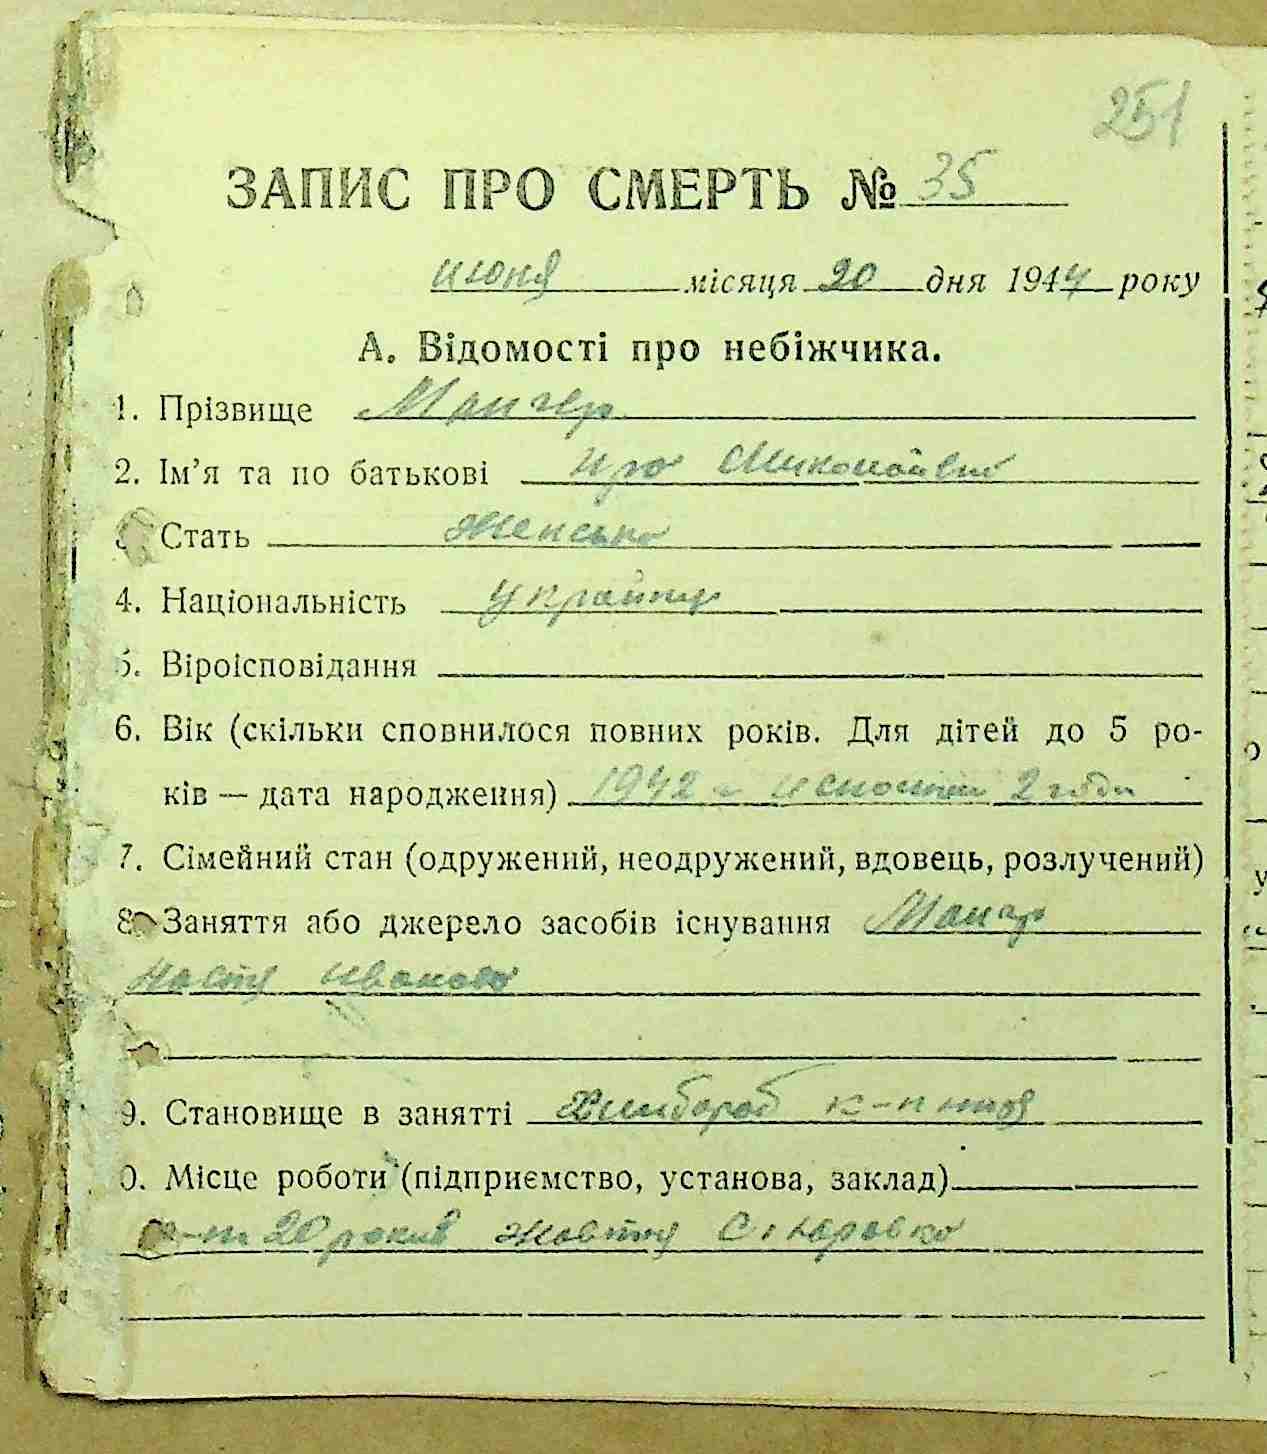 251
ЗАПИС ПРО СМЕРТЬ № 35
июня місяця 20 дня 1944 року
А. Відомості про небіжчика.
1. Прізвище
2. Ім'я та по батькові
Стать Женська
4. Національність
5. Віроісповідання
6. Вік (скільки сповнилося повних років. Для дітей до 5 ро-
ків — дата народження) 1942 г 2 года
7. Сімейний стан (одружений, неодружений, вдовець, розлучений)
8. Заняття або джерело засобів існування
Настя Иванова
9. Становище в занятті Хлибороб
0. Місце роботи (підприємство, установа, заклад)
20 років Жовтня